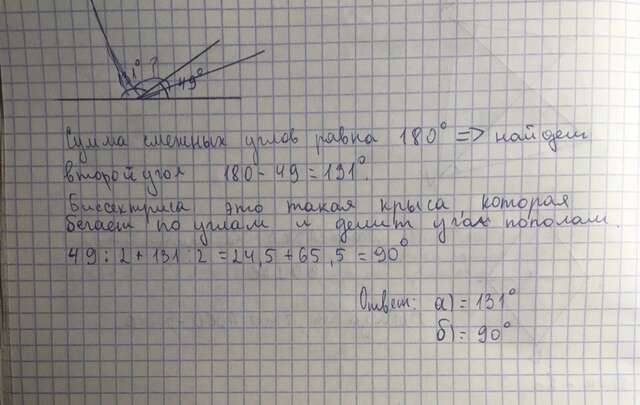 131° ?
49°
Сумма смежных углов равна 180° => найдем
второй угол 180 - 49 = 131°.
Биссектриса это такая крыса которая
бегает по углам и делит угол пополам.
49 : 2 + 131 : 2 = 24,5 + 65,5 = 90°
Ответ: а) = 131°
б) = 90°